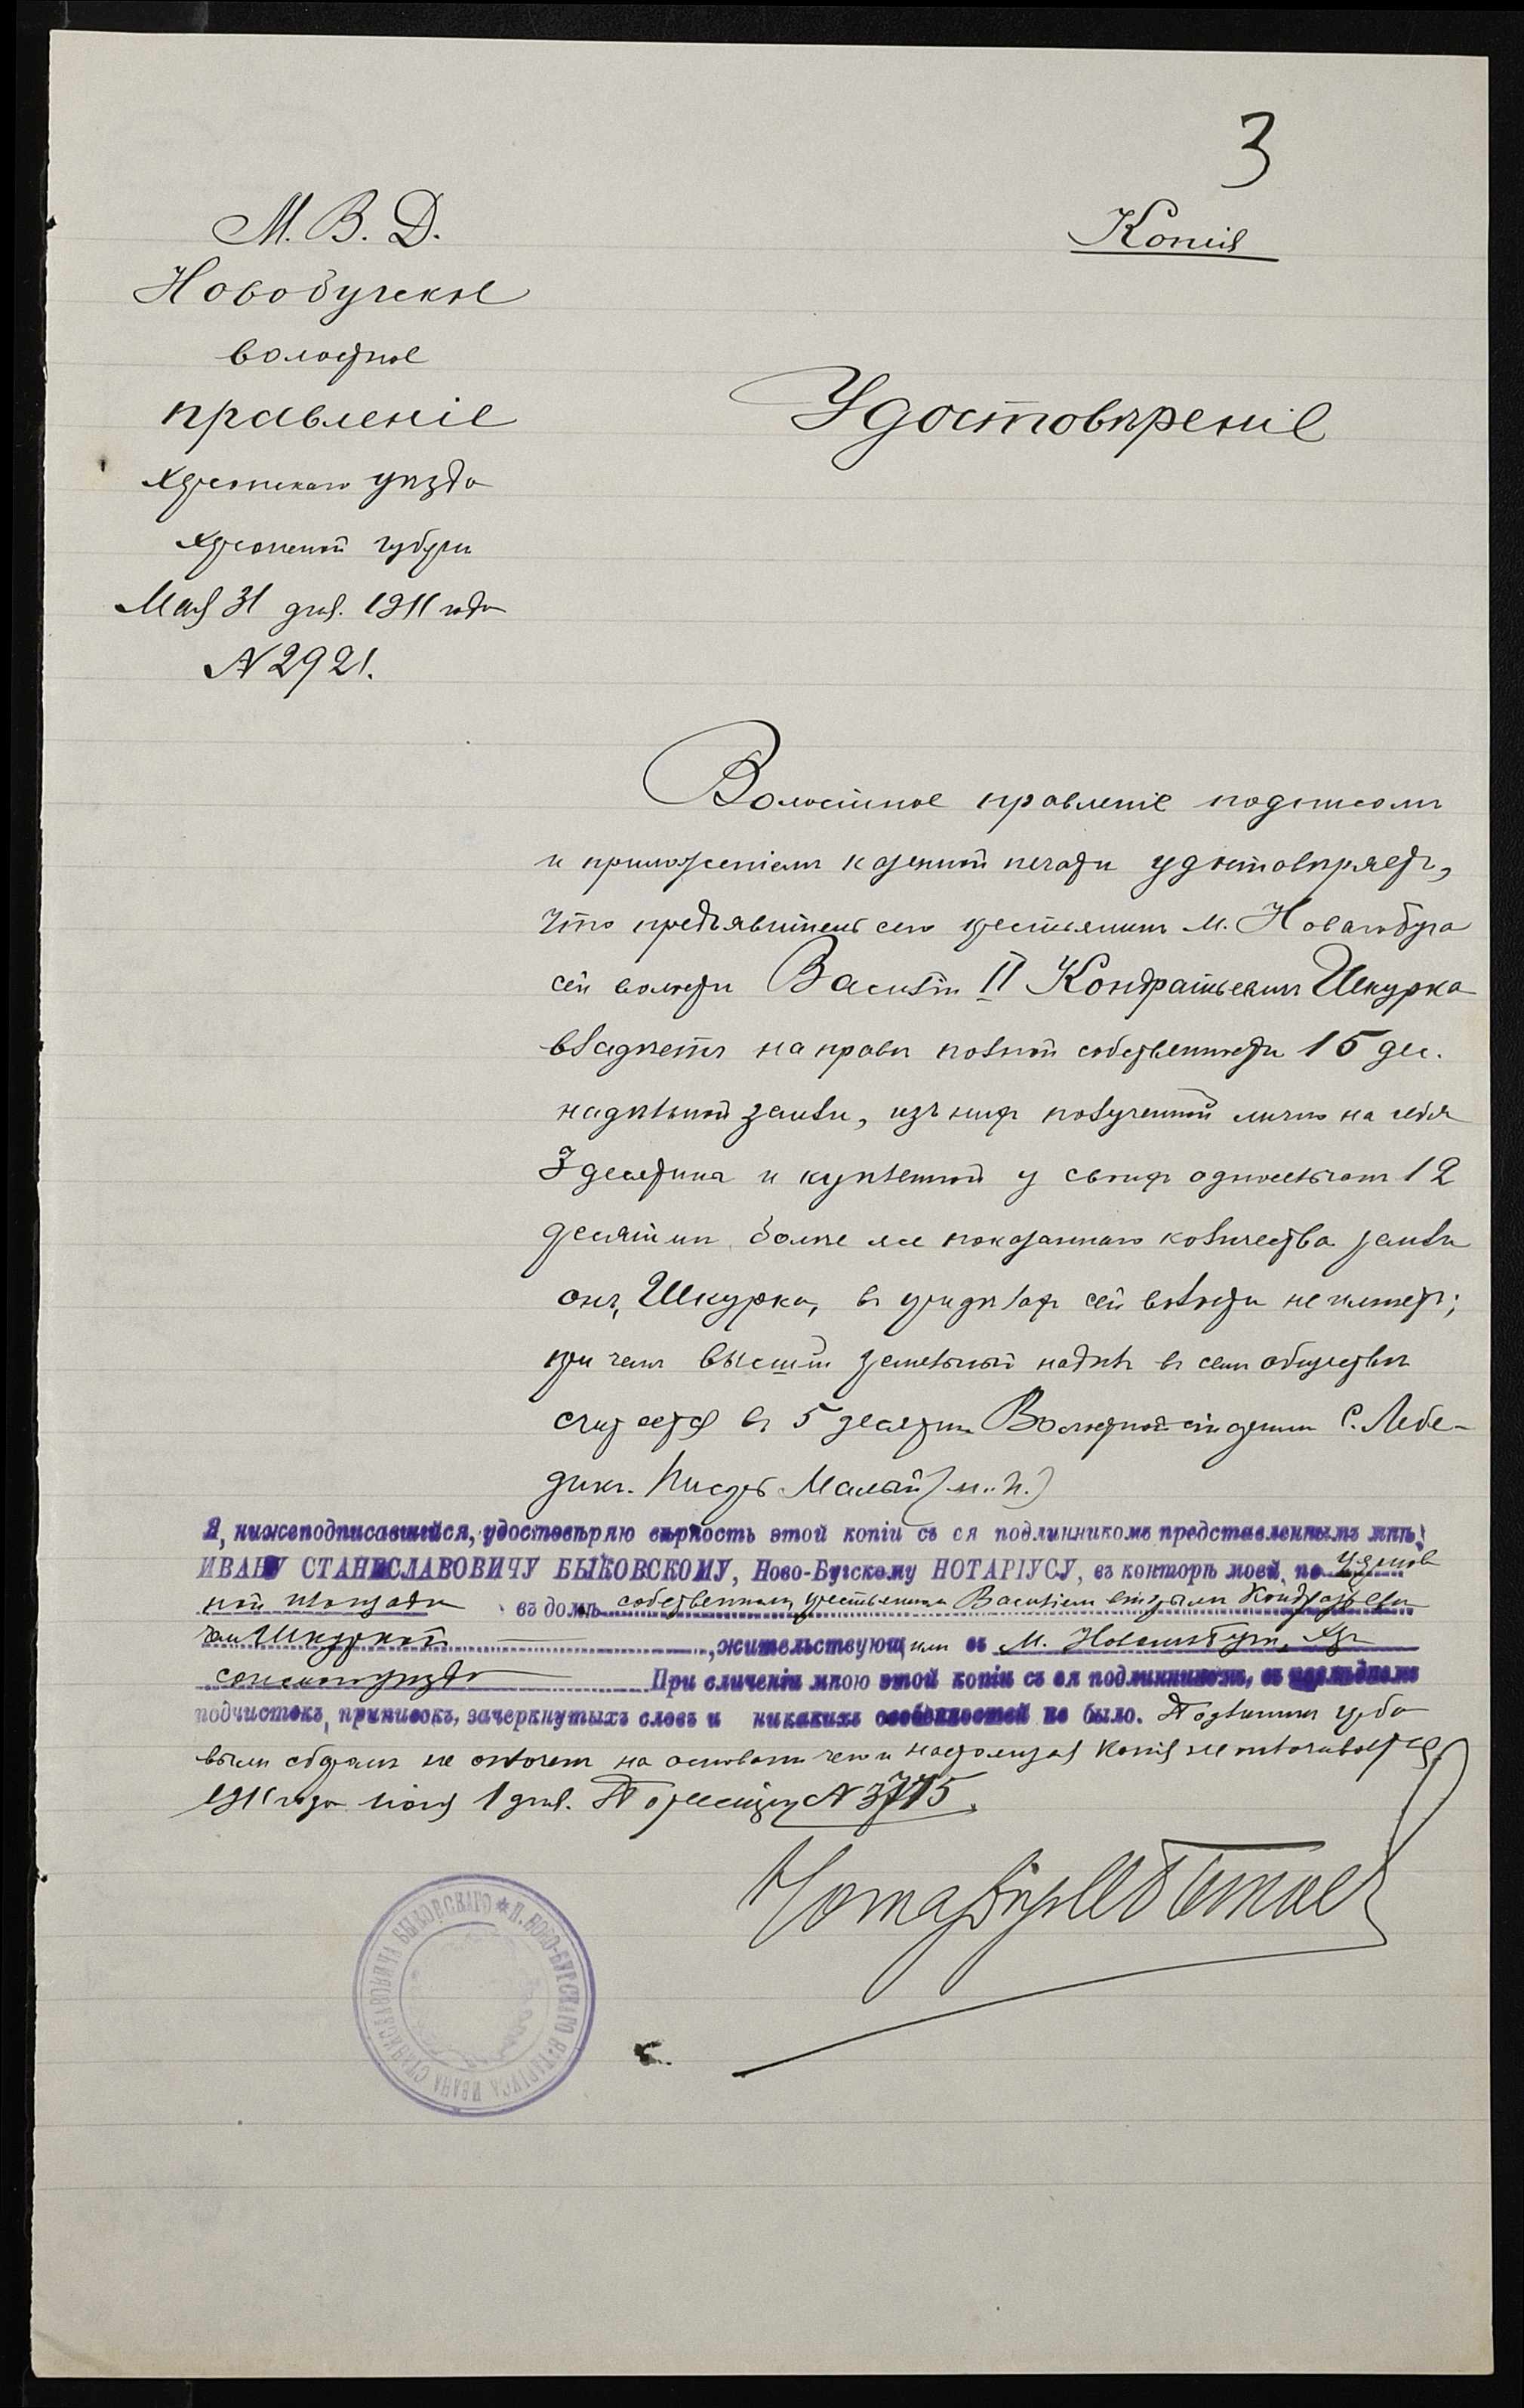 3
Копія
М. В. Д.
Новобугское
волостное
правленіе
Херсонскаго уѣзда
Херсонской губерн
Мая 31 дня. 1911 года
№ 2921.
Удостовѣреніе
Волостное правленіе подписомъ
и приложеніемъ казенной печати удостовѣряетъ,
что предъявитель сего крестьянинъ м. Новагобуга
сей волости Василій II Кондратьевичъ Шкурка
владѣетъ на правѣ полной собственности 15 дес.
надѣльной земли, изъ нихъ полученной лично на себя
3 десятина и купленной у своихъ односельчанъ 12
десятинъ, болѣе же показаннаго количества земли
онъ, Шкурка, въ предѣлахъ сей волости не имѣетъ;
при чемъ высшій земельный надѣлъ въ семъ обществѣ
считается въ 5 десятин. Волостной старшина С. Лебе-
дикъ. Писарь Малый (м.п.)
Я, нижеподписавшійся, удостовѣряю вѣрность этой копіи съ ея подлинникомъ представленнымъ мнѣ,
ИВАНУ СТАНИСЛАВОВИЧУ БЫКОВСКОМУ, Ново-Бугскому НОТАРІУСУ, въ конторѣ моей, по Церков
ной площади въ домѣ собственномъ, крестьянином Василіемъ вторымъ Кондратьеви
чемъ Шкуркой, жительствующимъ въ м. Новомъ Бугѣ, Хер
сонскаго уѣзда При сличеніи мною этой копіи съ ея подлинникомъ, въ послѣднемъ
подчистокъ, приписокъ, зачеркнутыхъ словъ и никакихъ особенностей не было. Подлинник гербо
вымъ сборомъ не оплоченъ на основаніи чего и настоящая копія не оплачивается
1911 года Іюня 1 дня. По реестру № 3775.
Нотаріусъ
Н. НОВО-БУГСКАГО НОТАРІУСА ИВАНА СТАНИСЛАВОВИЧА БЫКОВСКАГО